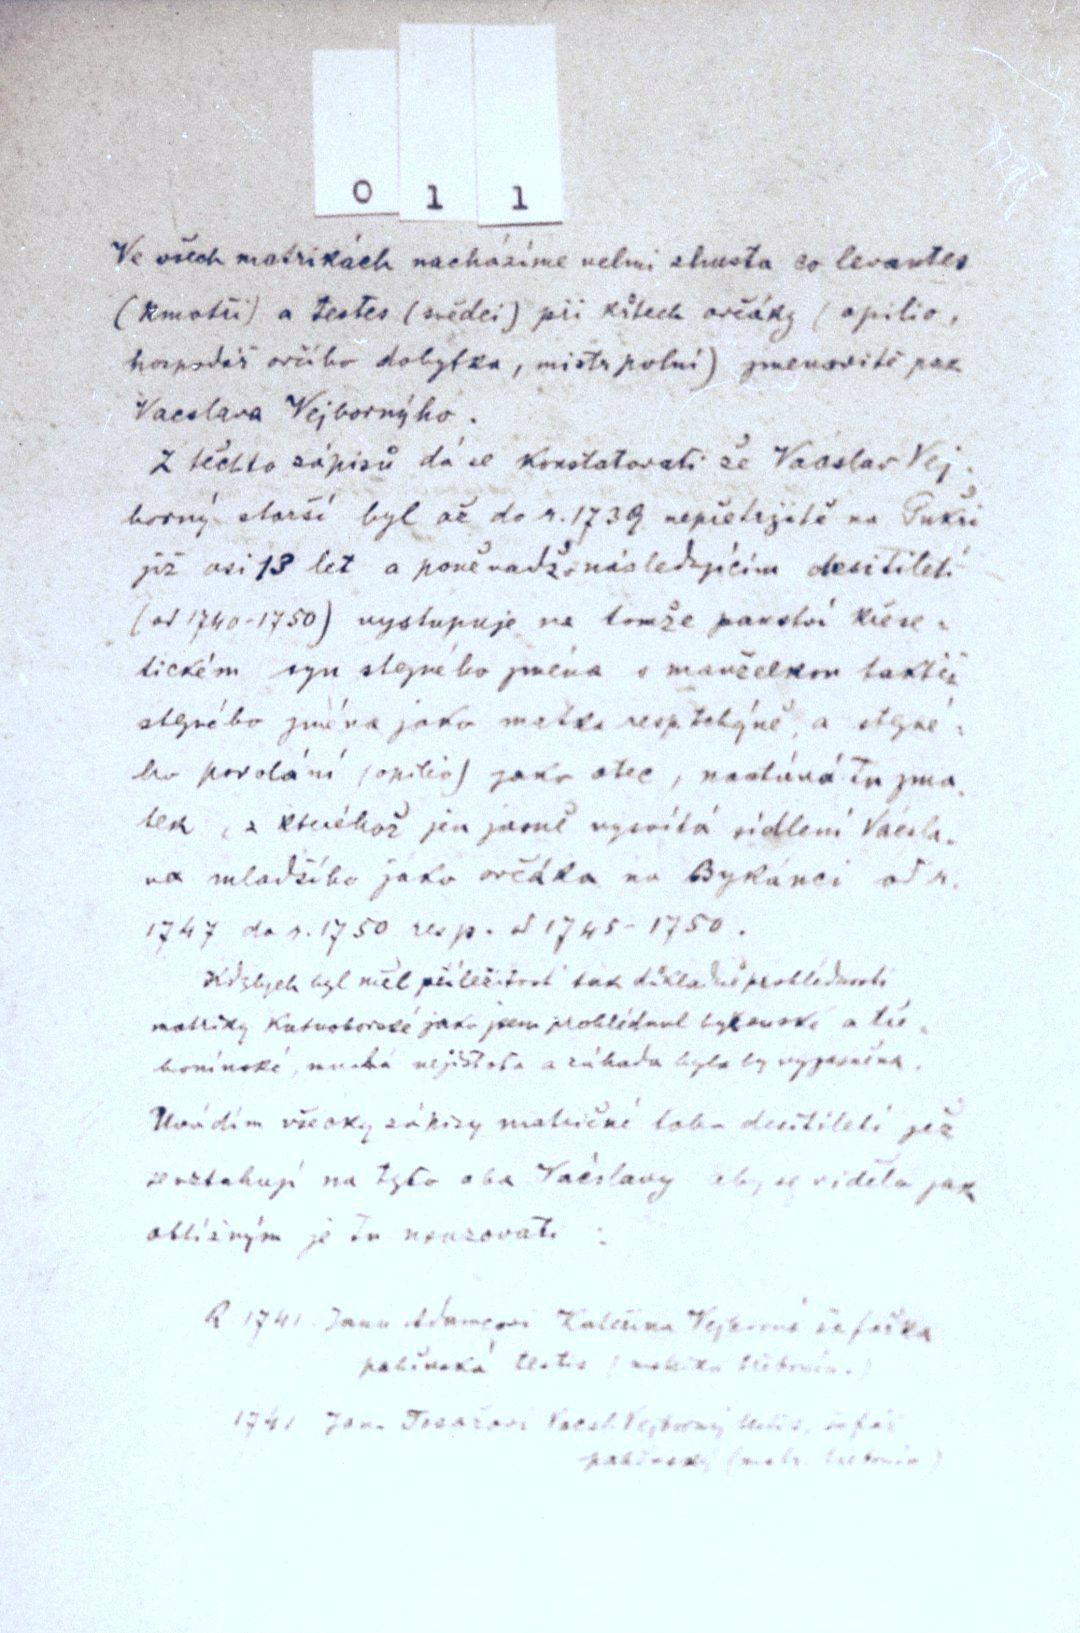 0 1 1
Ve všech matrikách nacházíme velmi zhusta co levantes
(kmotři) a testes (svědci) při křtech ovčáky (opilio,
hospodář ovčího dobytka, mistr polní) jmenovitě pak
Vacslava Vejbornýho.
Z těchto zápisů dá se konstatovati že Vácslav Vej-
borný starší byl až do r. 1739 nepřetržitě na
již asi 13 let a poněvadž následujícím desítiletí
(od 1740-1750) vystupuje na tomže panství křese-
tickém syn stejného jména s manželkou taktéž
stejného jména jako matka resp. tchýně, a stejné-
ho povolání (opilio) jako otec, nastává tu zma-
tek, z kteréhož jen jasně vysvítá sídlení Vácsla-
va mladšího jako ovčáka na Bykánci od r.
1747 do r. 1750 resp. od 1745-1750.
Kdybych byl měl příležitost tak důkladně prohlédnouti
matriky Kutnohorské jako jsem prohlédnul bykanské a tře-
bonínské, mnohá nejistota a záhada byla by vyjasněna.
Uvádím všecky zápisy matriční toho desítiletí jež
se vztahují na tyto oba Vácslavy aby se vidělo jak
obtížným je tu usuzovati :
R 1741. Janu Adamcovi Kateřina Vejborná šafářka
testis (matrika třebonín.)
1741 Jan Vacsl. Vejborný testis, šafář
(matr. třebonín)